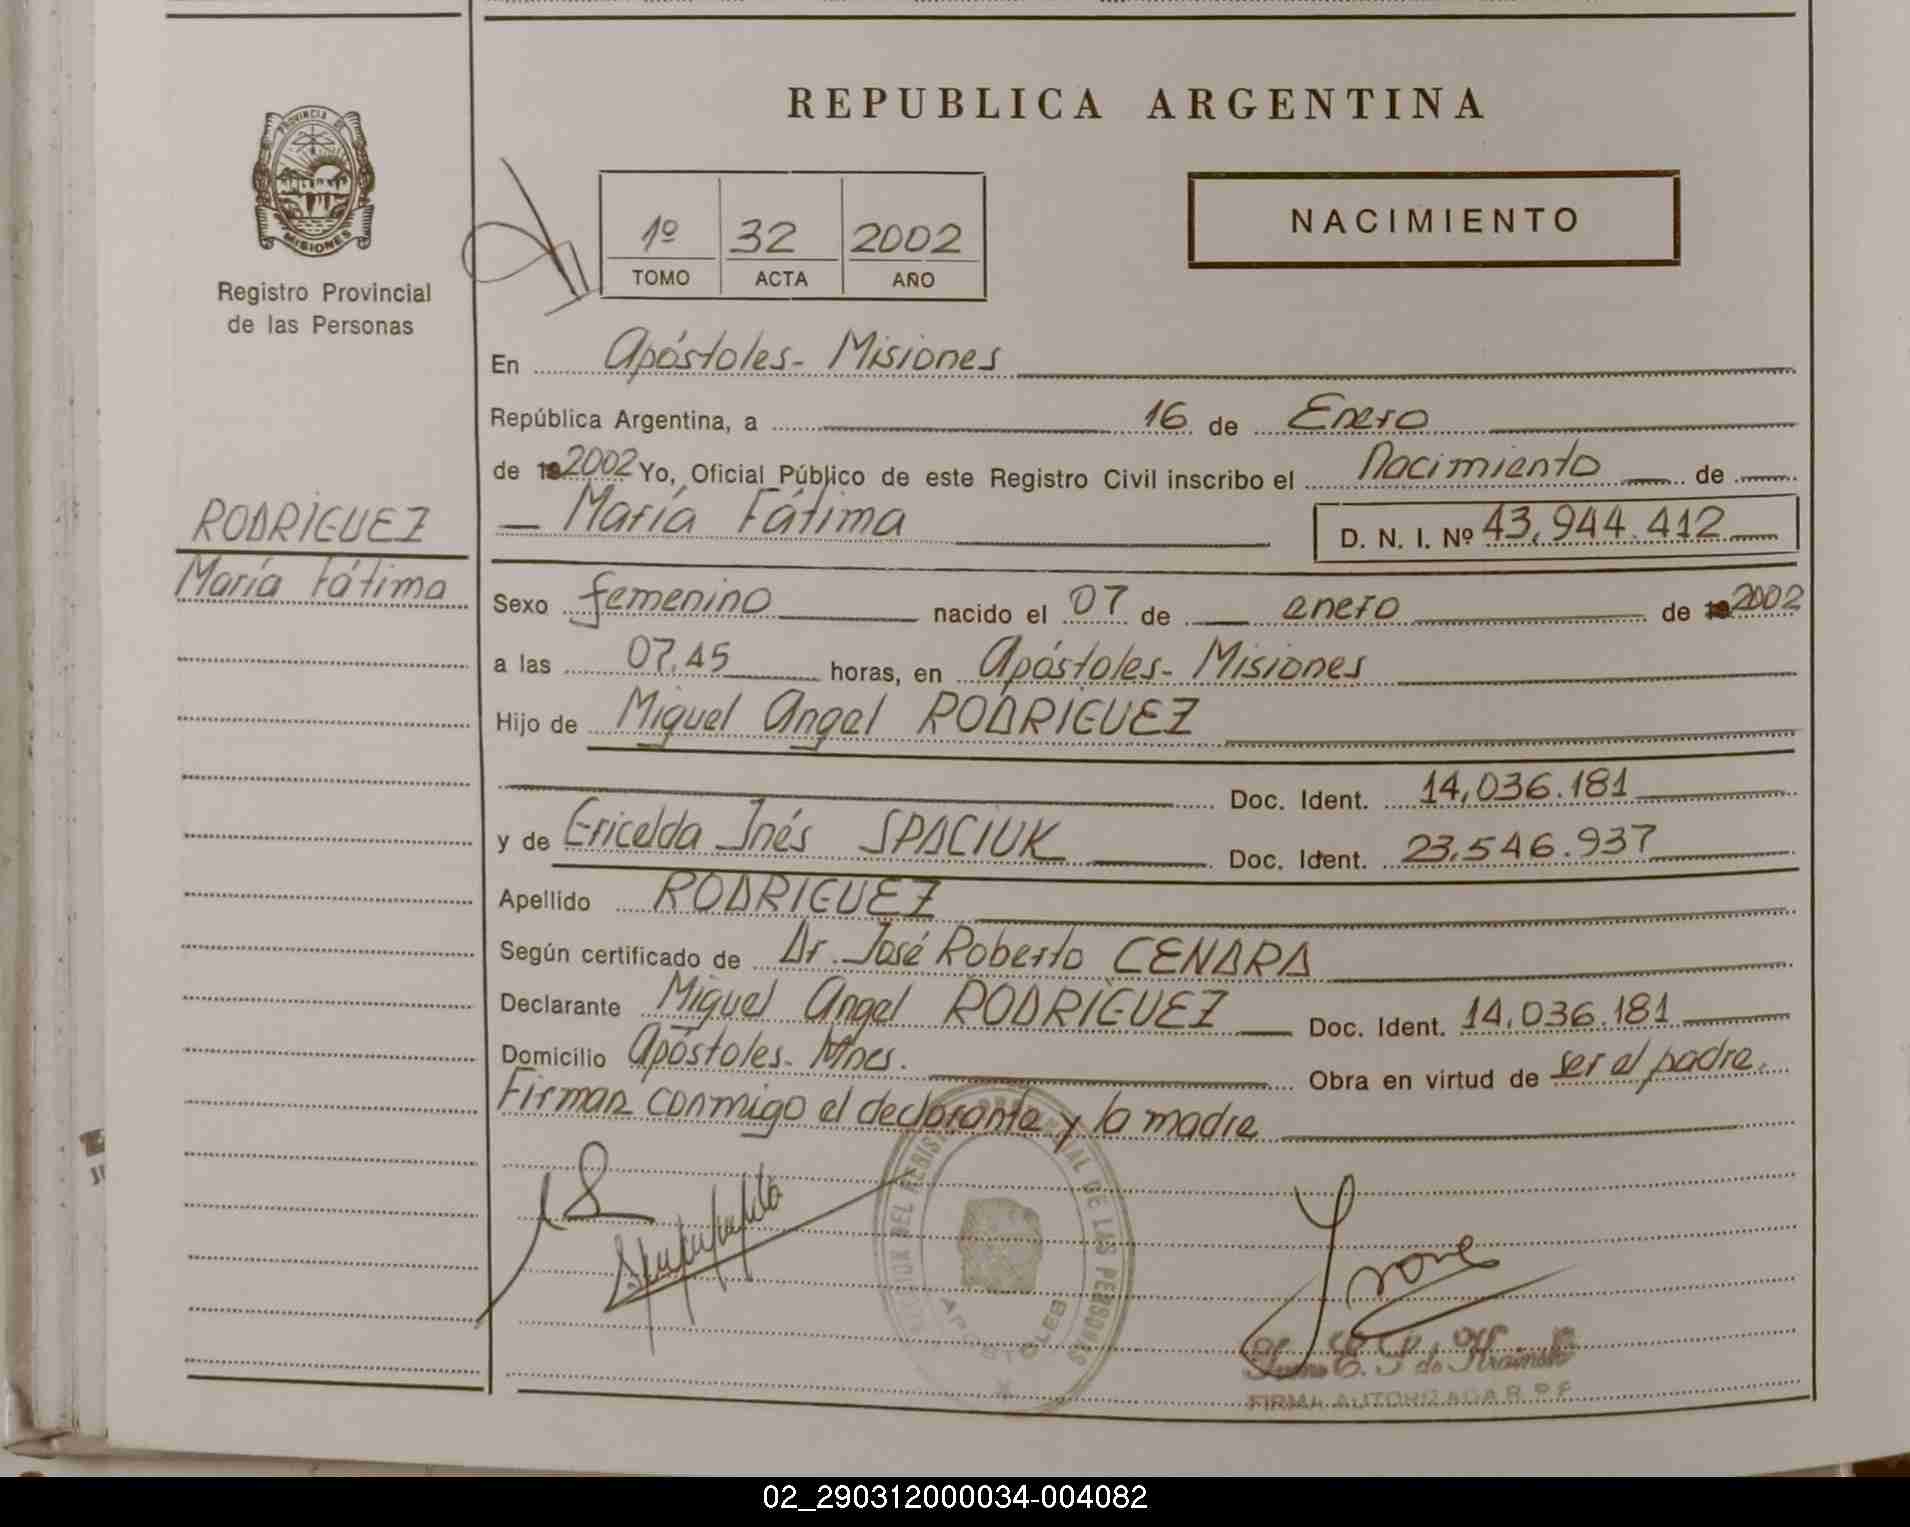 REPUBLICA ARGENTINA
PROVINCIA DE
MISIONES
Registro Provincial
de las Personas
1º 32 2002
TOMO ACTA AÑO
NACIMIENTO
En Apóstoles- Misiones
República Argentina, a 16 de Enero
de 2002 Yo, Oficial Público de este Registro Civil inscribo el Nacimiento de
RODRIGUEZ
María Fátima
María Fátima D. N. I. Nº 43,944.412
Sexo femenino nacido el 07 de enero de 2002
a las 07,45 horas, en Apóstoles- Misiones
Hijo de Miguel Angel RODRIGUEZ
Doc. Ident. 14,036.181
y de Ericelda Inés SPACIUK Doc. Ident. 23,546.937
Apellido RODRIGUEZ
Según certificado de Dr. José Roberto CENDRA
Declarante Miguel Angel RODRIGUEZ Doc. Ident. 14,036.181
Domicilio Apóstoles- Mnes. Obra en virtud de ser el padre.
Firman conmigo el declarante y la madre
DEL REGISTRO PROVINCIAL DE LAS PERSONAS
APOSTOLES
FIRMA AUTORIZADA R. P. P.
02_290312000034-004082